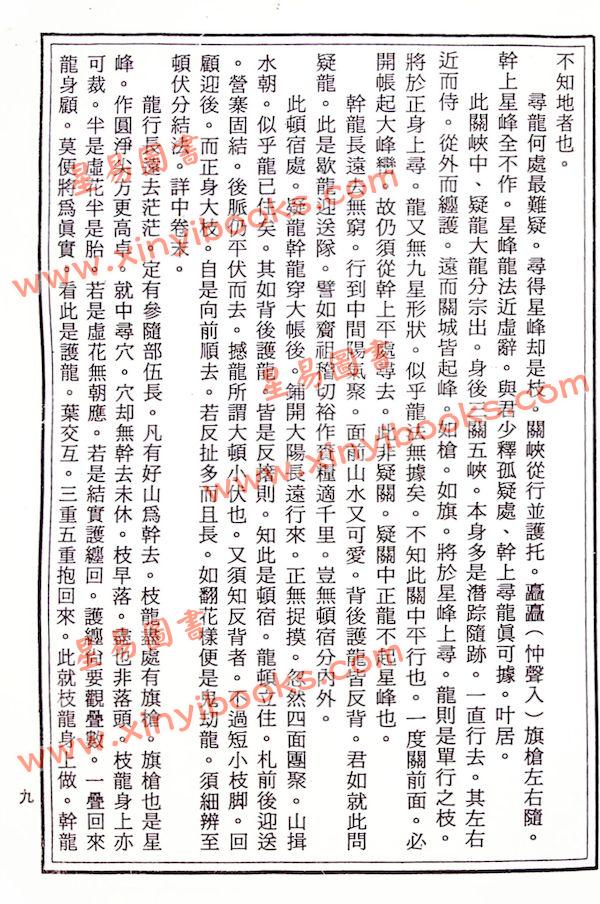 不知地者也。
尋龍何處最難疑。尋得星峰却是枝。關峽從行並護托。矗矗(忡聲入)旗槍左右隨。
幹上星峰全不作。星峰龍法近虛辭。與君少釋孤疑處、幹上尋龍眞可據。叶居。
此關峽中、疑龍大龍分宗出。身後三關五峽。本身多是潛踪隨跡。一直行去。其左右
近而侍。從外而纏護。遠而關城皆起峰。如槍。如旗。將於星峰上尋。龍則是單行之枝。
將於正身上尋。龍又無九星形狀。似乎龍法無據矣。不知此關中平行也。一度關前面。必
開帳起大峰巒。故仍須從幹上平處尋去。此非疑關。疑關中正龍不起星峰也。
幹龍長遠去無窮。行到中間陽氣聚。面前山水又可愛。背後護龍皆反背。君如就此問
疑龍。此是歇龍迎送隊。譬如齎祖糌切裕作資糧適千里。豈無頓宿分內外。
此頓宿處。疑龍幹龍穿大帳後。鋪開大陽長遠行來。正無捉摸。忽然四面團聚。山揖
水朝。似乎龍已住矣。其如背後護龍。皆是反揹則。知此是頓宿。龍頓立住。札前後迎送
。營寨固結。後脈仍平伏而去。撼龍所謂大頓小伏也。又須知反背者。不過短小枝脚。回
顧迎後。而正身大枝。自是向前順去。若反扯多而且長。如翻花樣便是鬼劫龍。須細辨至
頓伏分結法。詳中卷末。
龍行長遠去茫茫。定有參隨部伍長。凡有好山爲幹去。枝龍盡處有旗槍。旗槍也是星
峰。作圓淨尖方更高卓。就中尋穴。穴却無幹去未休。枝早落。盡也非落頭。枝龍身上亦
可裁。半是虛花半是胎。若是虛花無朝應。若是結實護纏回。護纏尙要觀疊數。一疊回來
龍身顧。莫便將爲眞實。看此是護龍。葉交互。三重五重抱回來。此就枝龍身上做。幹龍
九
星易圖書
www.xinyibooks.com
星易圖書
www.xinyibooks.com
星易圖書
www.xinyibooks.com